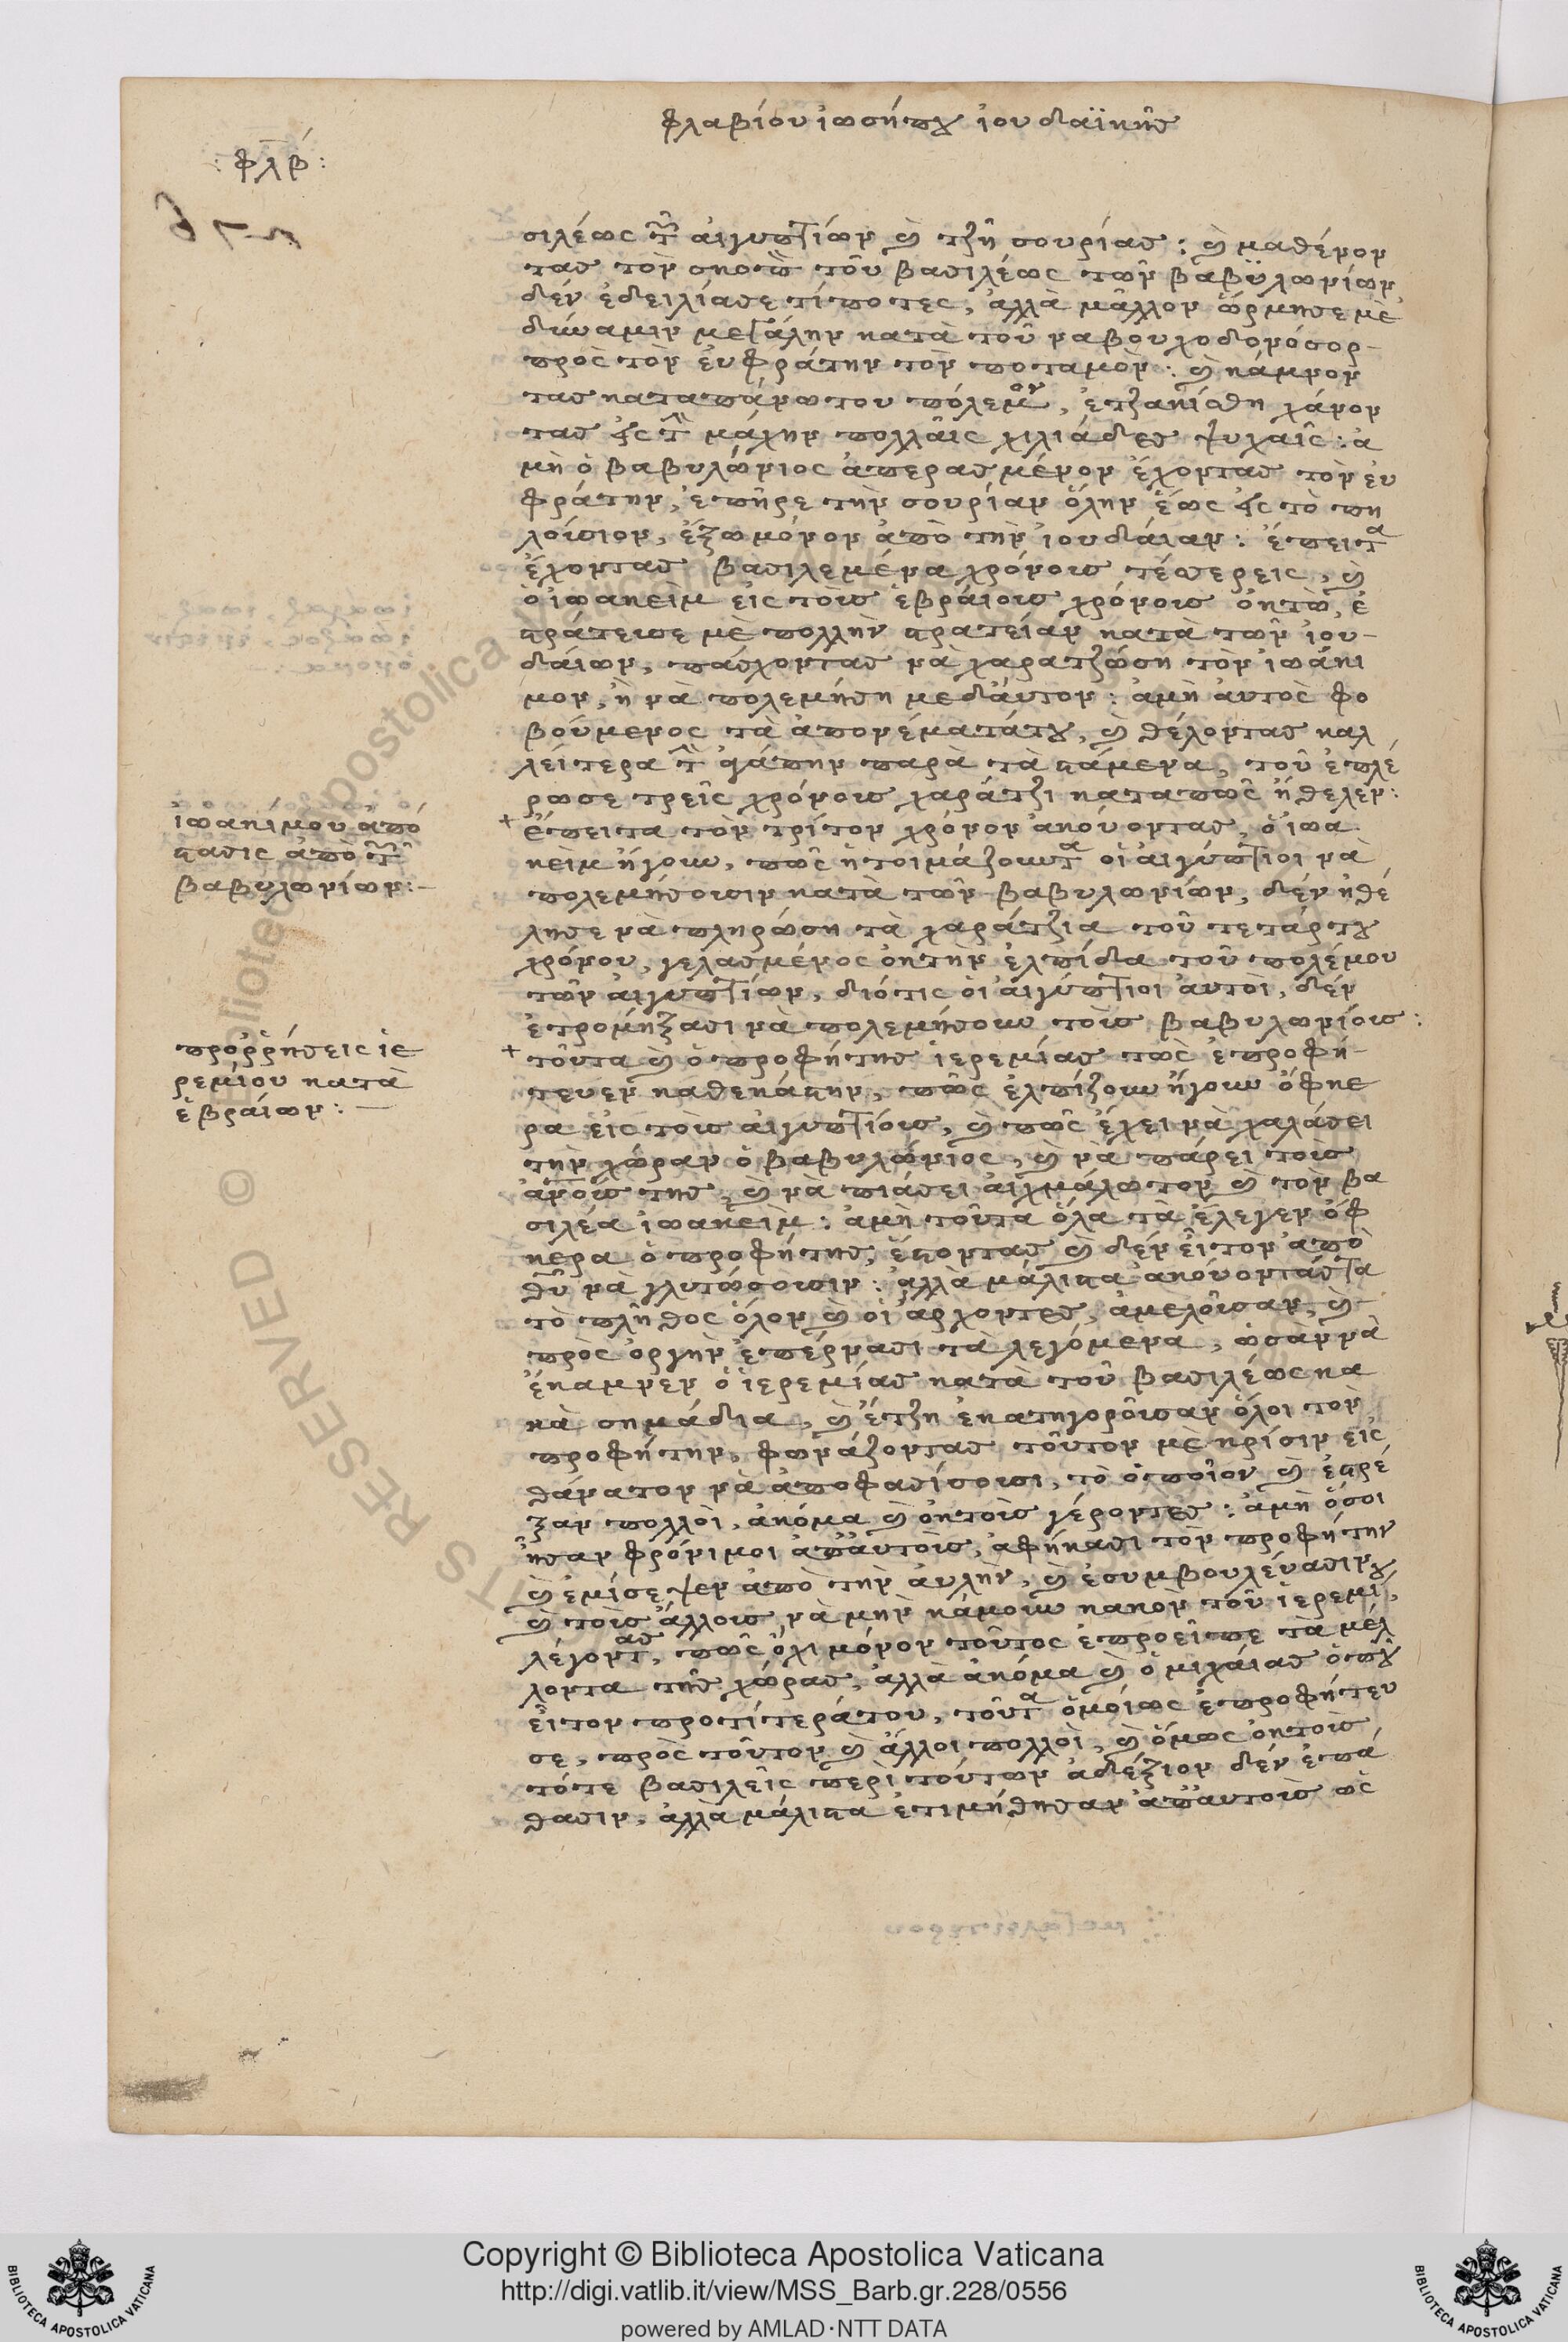 φλαβίου ἰωσήπου ἰουδαϊκῆς
: φλβ :
σιλέως τῶν αἰγυπτίων καὶ τζῆ συρίας : καὶ μαθένον
τας τὸν σκοπὸν τοῦ βασιλέως τῶν βαβυλωνίων
δέν ἐδειλίασε τίποτες, ἀλλὰ μᾶλλον ὥρμησε μὲ
δύναμιν μεγάλην κατὰ τοῦ ναβουχοδονόσορ-
πρὸς τὸν ἐυφράτην τὸν ποταμὸν : καὶ κάμνον
τας καταπάνωτου πόλεμον, ἐτζακίσθη χάνον
τας εἰς τὴν μάχην πολλαῖς χιλιάδες ψυχαῖς : ἀ
μὴ ὁ βαβυλώνιος ἀπερασμένον ἔχοντας τὸν ἐυ
φράτην, ἐπῆρε τὴν συρίαν ὅλην ἕως εἰς τὸ πη
λούσιον, ἔξω μόνον ἀπὸ τὴν ἰουδαίαν : ἔπειτα
ἔχοντας βασιλεμένα χρόνους τέσερεις, καὶ
ὁ ἰωακεὶμ εἰς τοὺς ἑβραίους χρόνους ὀκτὼ, ἐ
στράτευσε μὲ πολλὴν στρατείαν κατὰ τῶν ἰου-
δαίων, πάσχοντας νὰ χαρατζώση τὸν ἰωάκι
μον, ἢ νὰ πόλεμήση μεδἀυτον : ἀμὴ ἀυτὸς φο
βούμενος τὰ ἀπονέματάτου, καὶ θέλοντας καλ
λείτερα τὴν ἀγάπην παρὰ τὰ κάμενα, τοῦ ἐπλέ
ρωσε τρεῖς χρόνους χαράτζι καταπῶς ἤθελεν :
+ ἔπειτα τὸν τρίτον χρόνον ἀκούοντας, ὁ ἰωα
κεὶμ ἤγουν, πῶς ἡτοιμάζουντα οἱ αἰγύπτιοι νὰ
πολεμήσουσιν κατὰ τῶν βαβυλωνίων, δέν ἠθέ
λησε νὰ πληρώση τὰ χαράτζια τοῦ τετάρτου
χρόνου, γελασμένος ὀκτὴν ἐλπίδα τοῦ πολέμου
τῶν αἰγυπτίων, διότις οἱ αἰγύπτιοι ἀυτοὶ, δέν
ἐτρομήξασι νὰ πολεμήσουν τοὺς βαβυλωνίους :
+ τοῦτα καὶ ὁ προφήτης ἱερεμίας πῶς ἐπροφή-
τευεν καθεκάστην, πῶς ἐλπίζουν ἤγουν ὄφκε
ρα εἰς τοὺς αἰγυπτίους, καὶ πῶς ἔχει νὰ χαλάσει
τὴν χώραν ὁ βαβυλώνιος, καὶ νὰ πάρει τοὺς
ἀνοὺς της, καὶ νὰ πιάσει αἰχμάλωτον καὶ τὸν βα
σιλέα ἰωακεὶμ : ἀμὴ τοῦτα ὅλα τὰ ἔλεγεν ὄφ
κερα ὁ προφήτης, ἔστοντας καὶ δέν εἶτον ἀπὸ
θῦ νὰ γλυτώσουσιν : ἀλλὰ μάλιστα ἀκούοντάςτα
τὸ πλῆθος ὅλον καὶ οἱ ἄρχοντες, ἀμελοῦσαν, καὶ
πρὸς ὀργὴν ἐπέρνασι τὰ λεγόμενα, ὡσὰν νὰ
ἔκαμνεν ὁ ἱερεμίας κατὰ τοῦ βασιλέως κα
κὰ σημάδια, καὶ ἔτζη ἐκατηγοροῦσαν ὅλοι τὸν
προφήτην, φωνάζοντας τοῦτον μὲ κρίσιν εἰς
θάνατον νὰ ἀποφασίσουσι, τὸ ὁποῖον καὶ ἐστρέ
ξαν πολλοὶ, ἀκόμα καὶ ὀκτοὺς γέροντες : ἀμὴ ὅσοι
ἦσαν φρόνιμοι ἀπἀυτοὺς, ἀφήκασι τὸν προφήτην
καὶ ἐμίσεψεν ἀπὸ τὴν ἀυλὴν, καὶ ἐσυμβουλέυασιν
καὶ τοὺς ἄλλους νὰ μὴν κάμουν κακὸν τοῦ ἱερεμί,
λέγοντας, πῶς ὄχι μόνον τοῦτος ἐπροεῖπε τὰ μέλ
λοντα τῆς χώρας, ἀλλὰ ἀκόμα καὶ ὁ μιχαίας ὁποῦ
εἶτον προτίτεράτου, τοῦτα ὁμοίως ἐπροφήτευ
σε, πρὸς τοῦτον καὶ ἄλλοι πολλοὶ, καὶ ὅμως ὀκτοὺς
τότε βασιλεῖς περὶ τούτων ἀδέξιον δέν ἐπά
θασιν, ἀλλὰ μάλιστα ἐτιμήθησαν ἀπἀυτοὺς ὡς
ἰωακίμου ἀπό
στασις ἀπὸ τῶν
βαβυλωνίων :-
προῤῥήσεις ἱε
ρεμίου κατὰ
ἑβραίων :-
Copyright © Biblioteca Apostolica Vaticana
http://digi.vatlib.it/view/MSS_Barb.gr.228/0556
powered by AMLAD·NTT DATA
BIBLIOTECA APOSTOLICA VATICANA
BIBLIOTECA APOSTOLICA VATICANA